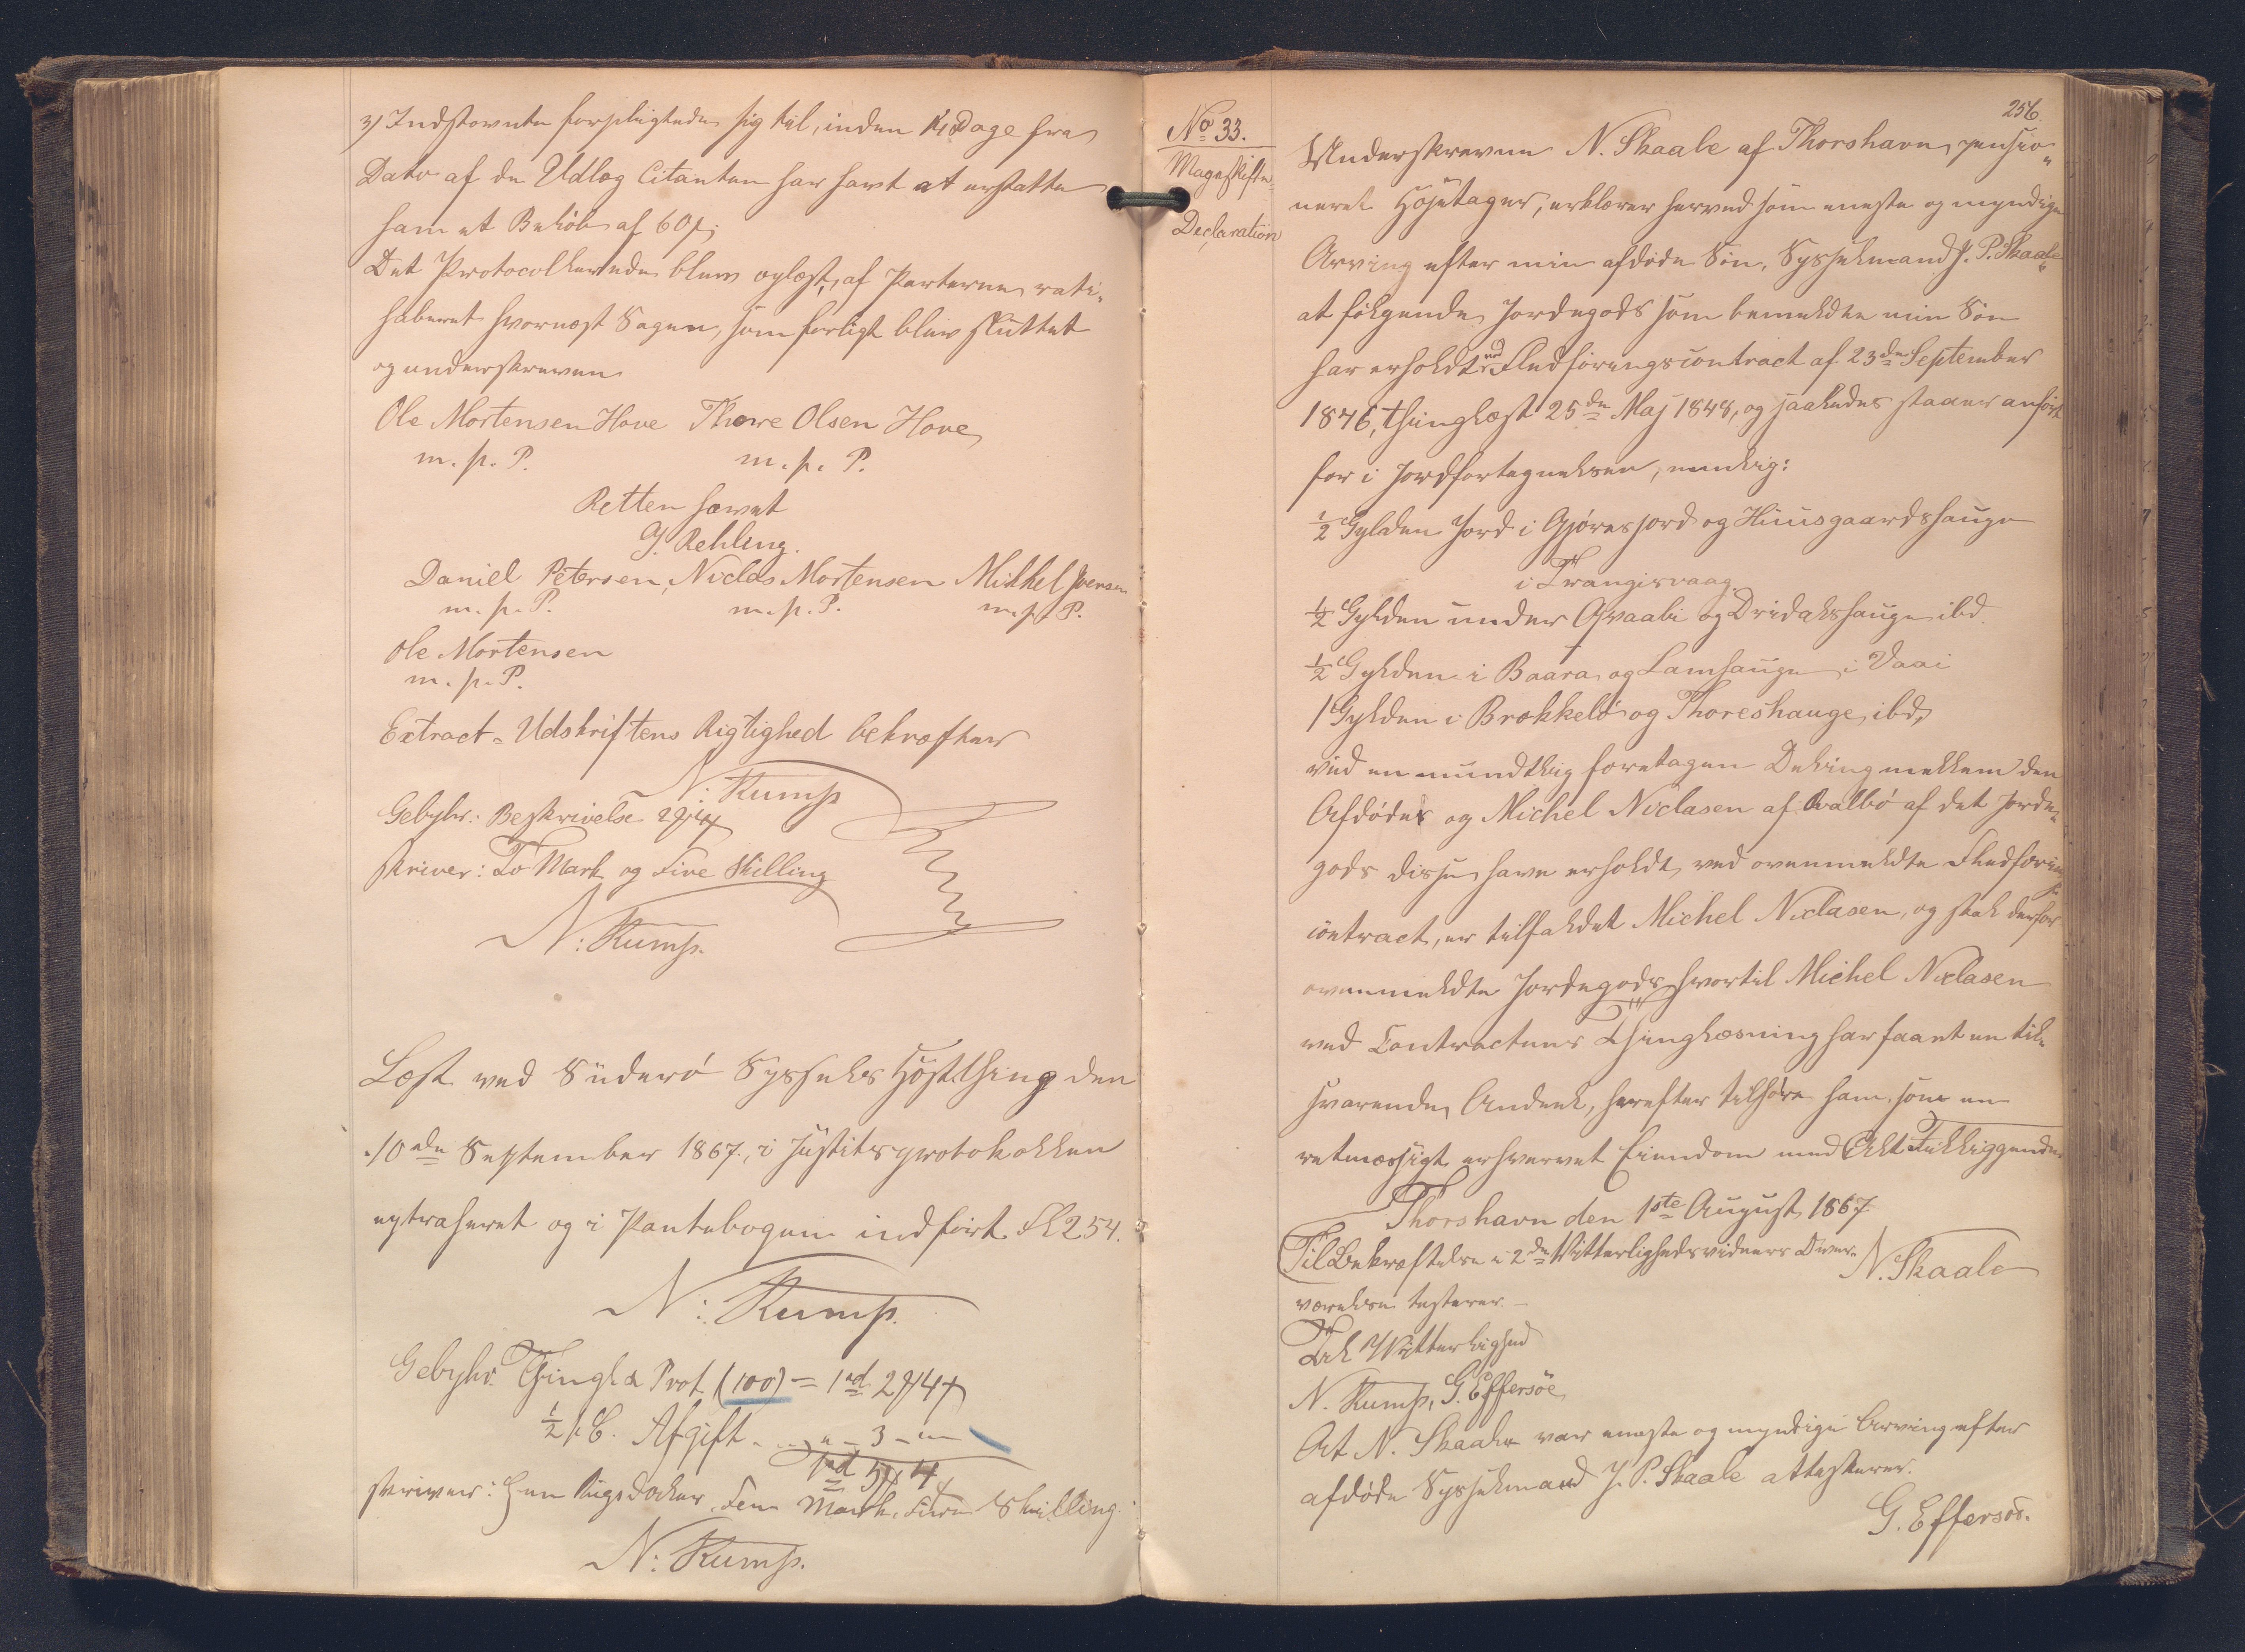 3) Indstævnte forpligtede sig til, inden 14 Dage fra
Dato af de Udlæg Citanten har havt at erstatte
ham et Beløb af 60 β;
Det Protocollerede blev oplæst, af Parterne rati-
haberet hvornæst Sagen, som forligt blev sluttet
og underskreven
Ole Mortensen Hove Thore Olsen Hove
m. p. P. m. p. P.
Retten hævet
J. Rehling.
Daniel Petersen, Niclas Mortensen Mikkel Joensen
m. p. P. m. p. P. m. p. P.
Ole Mortensen
m. p. P.
Extract-Udskriftens Rigtighed bekræfter
N: Rump
Gebyhr: Beskrivelse
skriver: To Mark og Fire Skilling
N: Rump.
Læst ved Süderö Syssels Høstthing den
10de September 1867, i Justitsprotokollen
extraheret og i Pantebogen indført Fl 254.
N: Rump.
Gebyhr. Thingl & Prot (100) = 1 rd 2 β 4 β
½ p. C. Afgift - " - 3 - "
1 rd 5 β 4
skriver: Een Rigsdaler Fem Mark, Fire Skilling.
N: Rump.
No 33.
Mageskifte-
Declaration
256.
Underskrevne N. Skaale af Thorshavn, pensio-
neret Højetager, erklærer herved som eneste og myndige
Arving efter min afdøde Søn, Sysselmand J. P. Skaale
at følgende Jordegods som bemeldte min Søn
har erholdt ved Fledføringscontract af 23de September
1846, thinglæst 25de Maj 1848, og saaledes staaer anført
for i Jordfortegnelsen, nemlig:
½ Gylden Jord i Gjøresjord og Huusgaardshauge
i Trangisvaag
½ Gylden under Qvaabi og Dridalshauge ibd.
½ Gylden i Baara og Lamhauge i Vaai
1 Gylden i Brekkelö og Thoreshauge, ibd,
ved en mundtlig foretagen Deling mellem den
Afdøde og Michel Niclasen af Qvalbö af det Jorde-
gods disse have erholdt ved ovenmeldte Fledførings
contract, er tilfaldet Michel Niclasen, og skal derfor
ovenmeldte Jordegods hvortil Michel Niclasen
ved Contractens Thinglæsning har faaet en til-
svarende Andeel, herefter tilhøre ham, som en
retmæssigt erhvervet Eiendom med Alt Tilliggende
Thorshavn den 1ste August 1867.
Til Bekræftelse i 2de Vitterlighedsvidners Over-
N. Skaale
værelse testerer. -
Til Vitterlighed
N. Rump, G. Effersöe
At N. Skaale var eneste og myndige Arving efter
afdøde Sysselmand J. P. Skaale attesterer.
G. Effersöe.